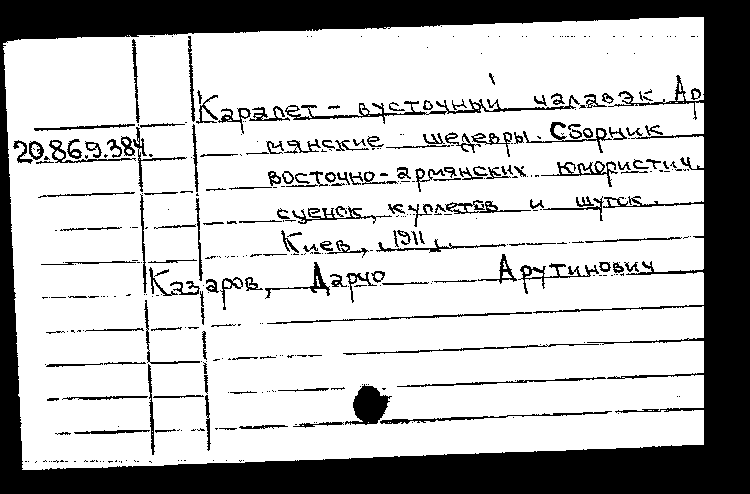 Карапет - вусточный чалавэк. Ар
20.86.9.384.
мянские шедевры. Сборник
восточно-армянских юмористич.
сценок, куплетов и шуток.
Киев, 1911.
Казаров, Дарчо Арутинович